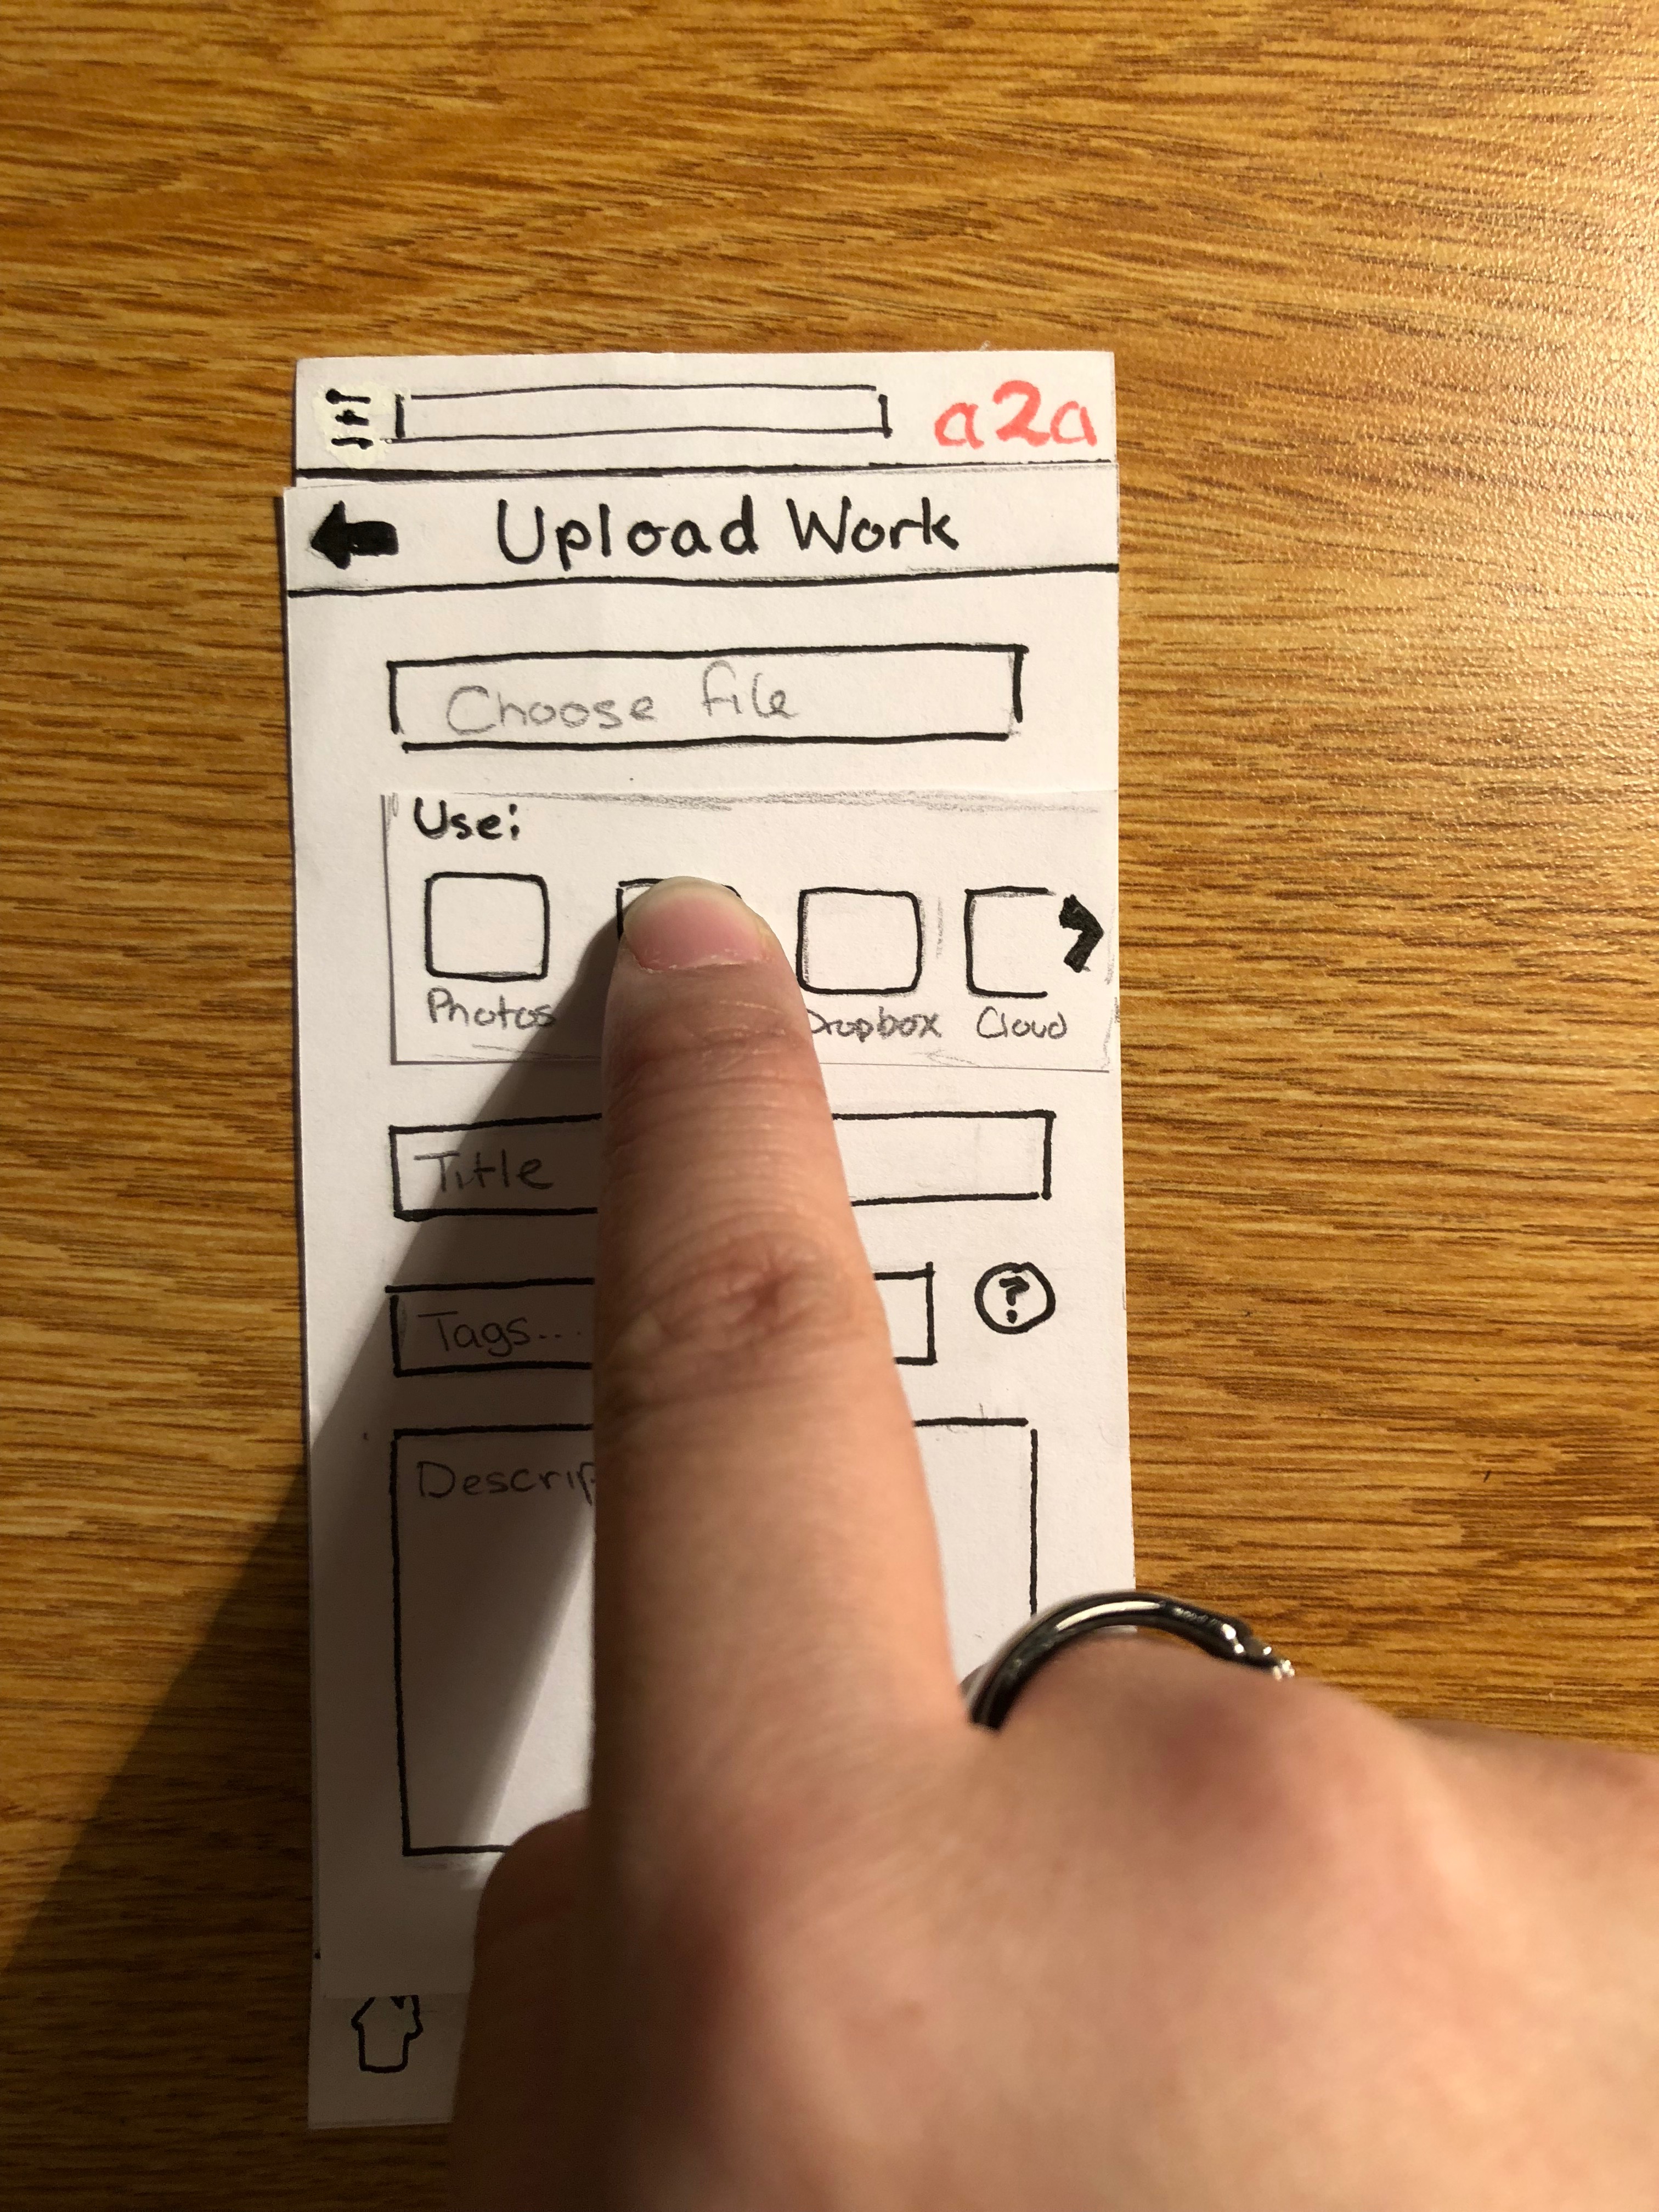 a2a
Upload Work
Choose file
Use:
Photos Dropbox Cloud
Title
?
Tags...
Descrip